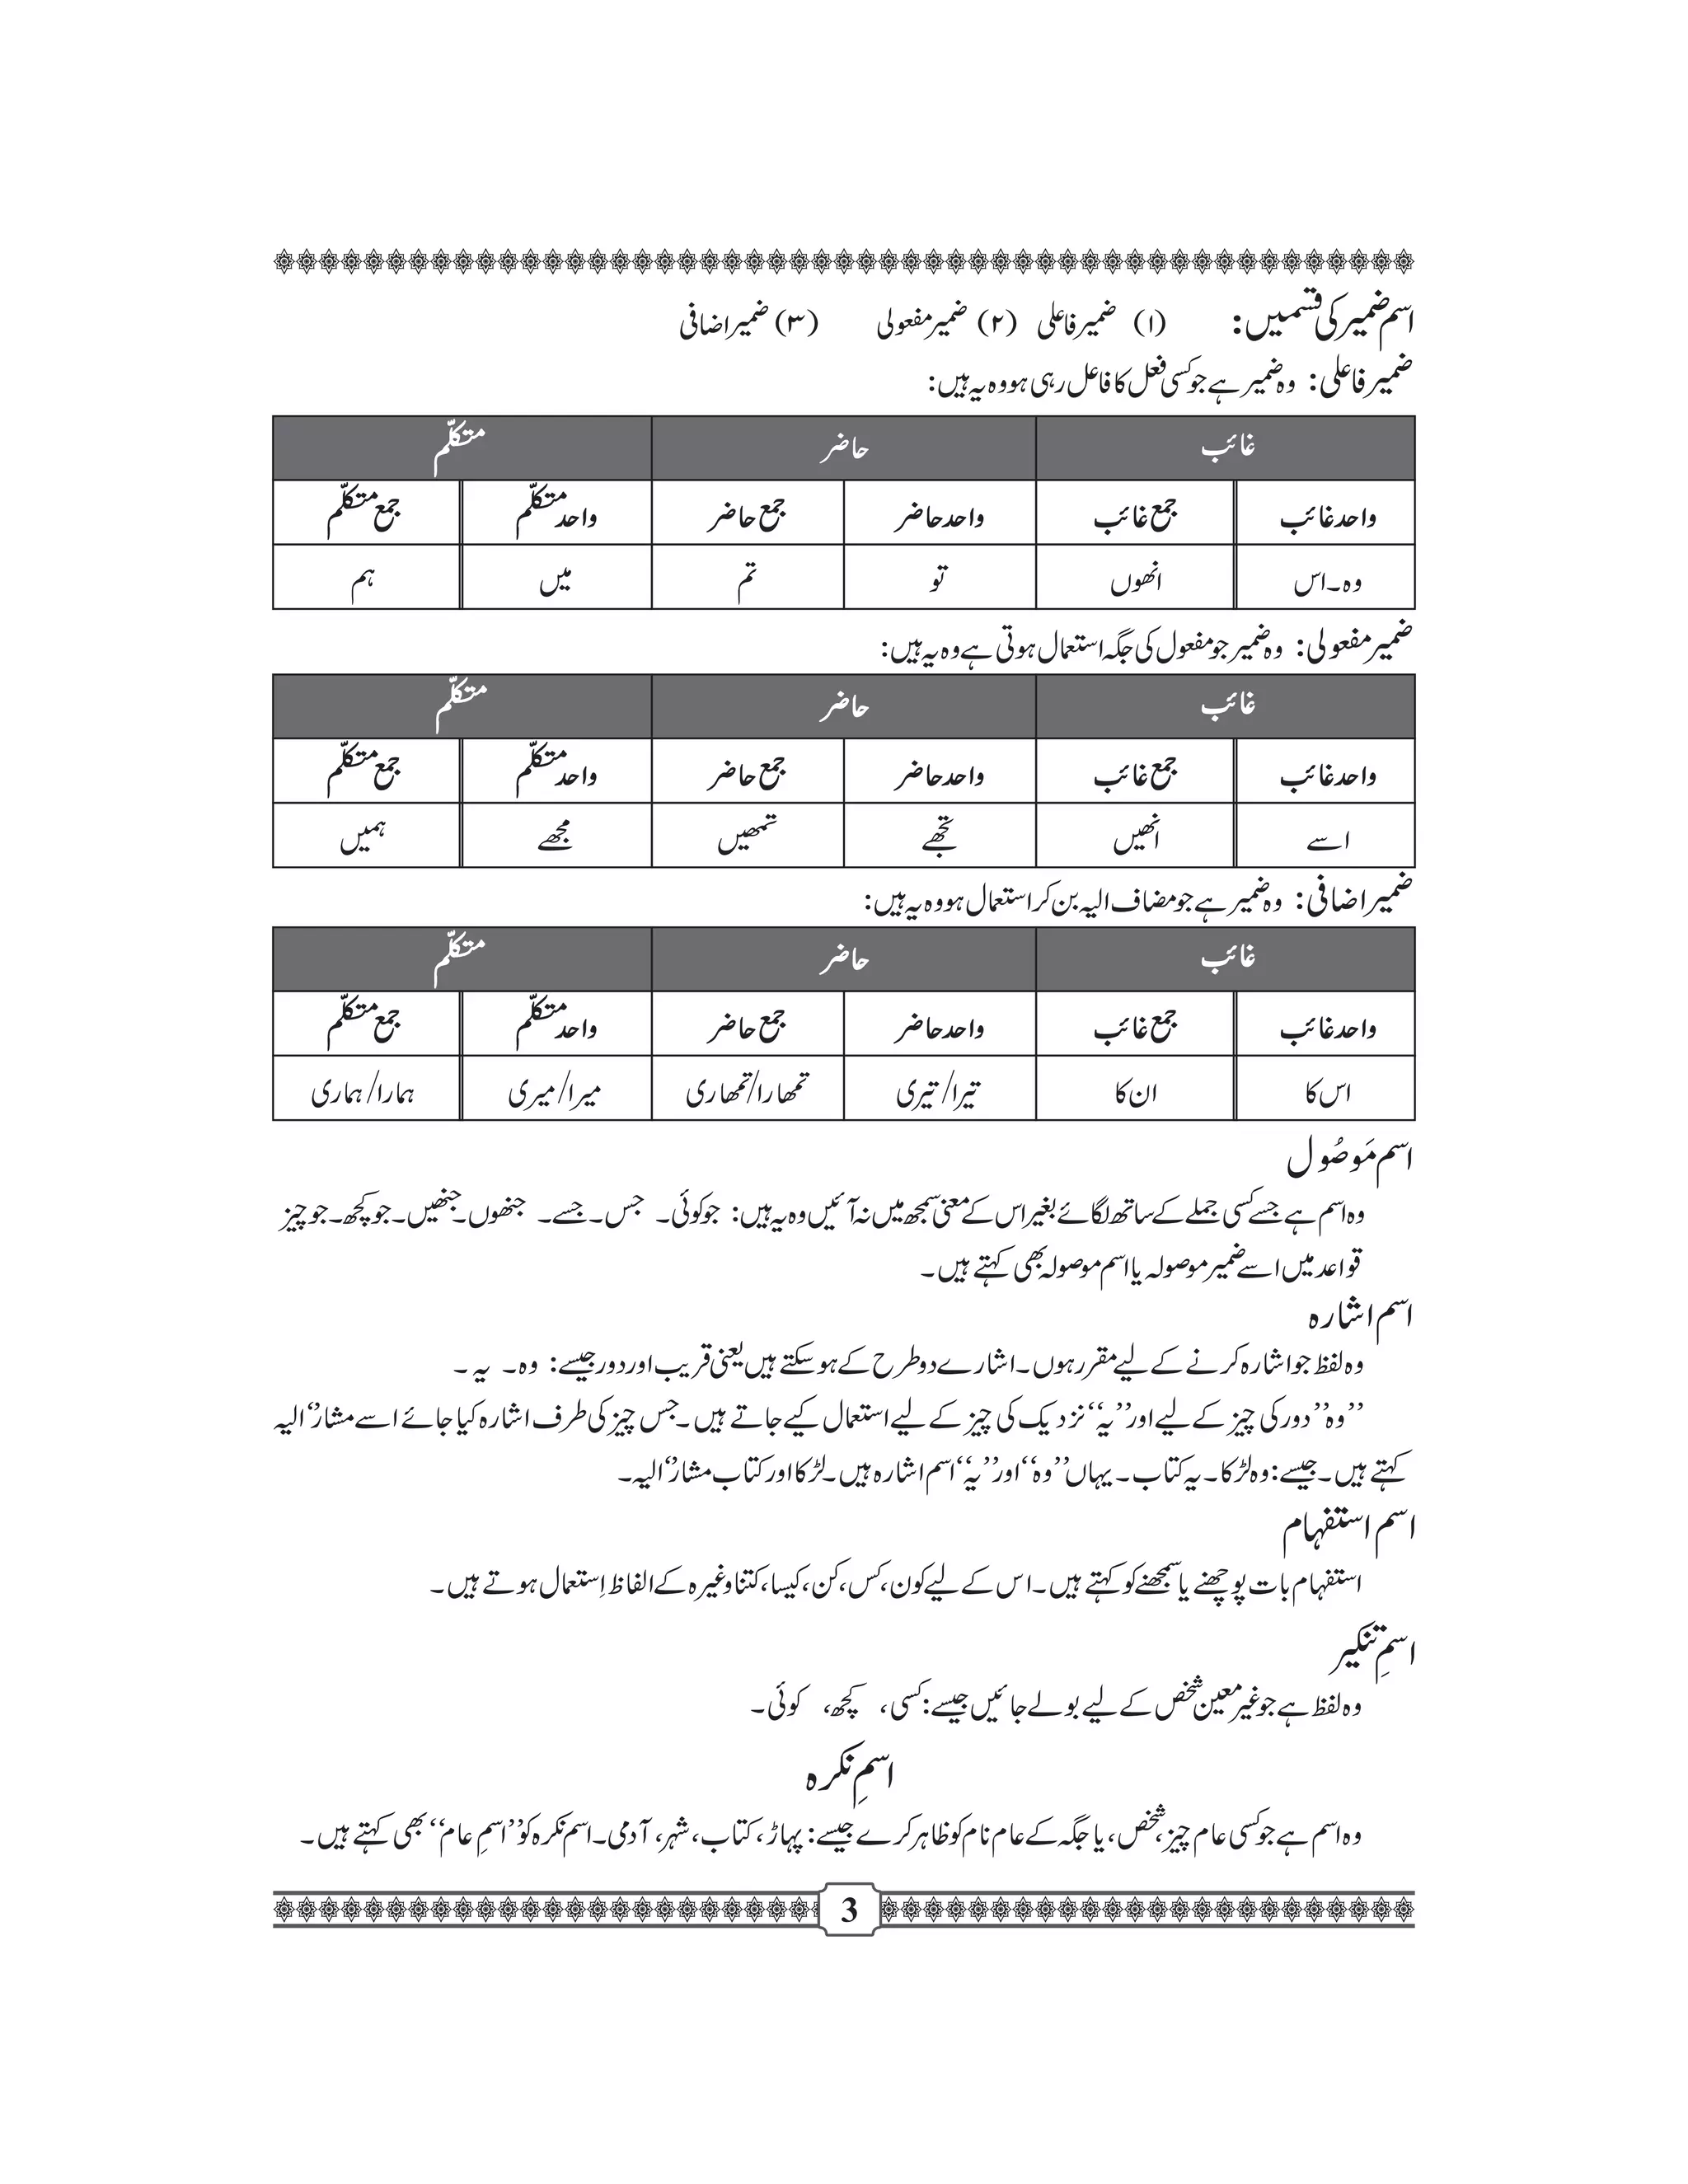 اسم ضمیر کی قسمیں: (۱) ضمیر فاعلی (۲) ضمیر مفعولی (۳) ضمیر اضافی
ضمیر فاعلی: وہ ضمیر ہے جو کسی فعل کا فاعل رہی ہو وہ یہ ہیں:
غائب حاضر متکلّم
واحد غائب جمع غائب واحد حاضر جمع حاضر واحد متکلّم جمع متکلّم
وہ۔اس انھوں تو تم میں ہم
ضمیر مفعولی: وہ ضمیر جو مفعول کی جگہ استعمال ہوتی ہے وہ یہ ہیں:
غائب حاضر متکلّم
واحد غائب جمع غائب واحد حاضر جمع حاضر واحد متکلّم جمع متکلّم
اسے انھیں تجھے تمھیں مجھے ہمیں
ضمیر اضافی: وہ ضمیر ہے جو مضاف الیہ بن کر استعمال ہو وہ یہ ہیں:
غائب حاضر متکلّم
واحد غائب جمع غائب واحد حاضر جمع حاضر واحد متکلّم جمع متکلّم
اس کا ان کا تیرا/تیری تمھارا/تمھاری میرا/میری ہمارا/ہماری
اسم مَوصُول
وہ اسم ہے جسے کسی جملے کے ساتھ لگائے بغیر اس کے معنی سمجھ میں نہ آئیں وہ یہ ہیں: جو کوئی۔ جس۔ جسے۔ جنھوں۔ جنھیں۔ جو کچھ۔ جو چیز
قواعد میں اسے ضمیر موصولہ یا اسم موصولہ بھی کہتے ہیں۔
اسم اشارہ
وہ لفظ جو اشارہ کرنے کے لیے مقرر ہوں۔ اشارے دو طرح کے ہوسکتے ہیں یعنی قریب اور دور جیسے: وہ۔ یہ۔
’’وہ’’ دور کی چیز کے لیے اور ’’یہ‘‘ نزدیک کی چیز کے لیے استعمال کیے جاتے ہیں۔ جس چیز کی طرف اشارہ کیا جائے اسے مشارٌ الیہ
کہتے ہیں۔ جیسے: وہ لڑکا۔ یہ کتاب۔ یہاں ’’وہ‘‘ اور ’’یہ‘‘ اسم اشارہ ہیں۔ لڑکا اور کتاب مشارٌ الیہ۔
اسم استفہام
استفہام بات پوچھنے یا سمجھنے کو کہتے ہیں۔ اس کے لیے کون، کس، کن، کیسا، کتنا وغیرہ کے الفاظ اِستعمال ہوتے ہیں۔
اسمِ تنکیر
وہ لفظ ہے جو غیر معین شخص کے لیے بولے جائیں جیسے: کسی، کچھ، کوئی۔
اسمِ نکرہ
وہ اسم ہے جو کسی عام چیز، شخص، یا جگہ کے عام نام کو ظاہر کرے جیسے: پہاڑ، کتاب، شہر، آدمی۔ اسم نکرہ کو ’’اسمِ عام‘‘ بھی کہتے ہیں۔
3